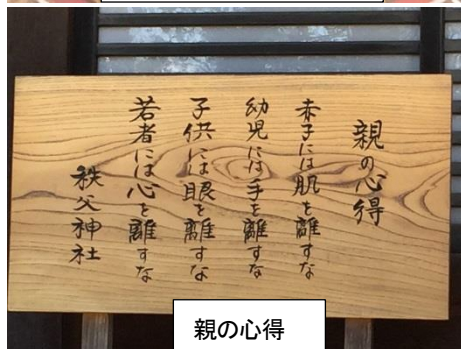 親の心得
赤子には肌を離すな
幼児には手を離すな
子供には眼を離すな
若者には心を離すな
秩父神社
親の心得